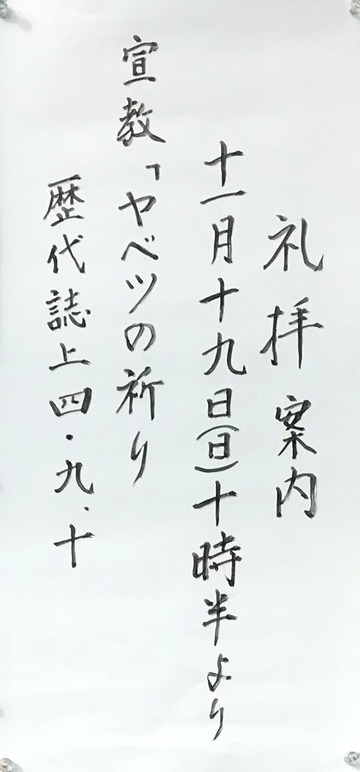 礼拝案内
十一月十九日(日)十時半より
宣教「ヤベツの祈り
歴代誌上四・九、十